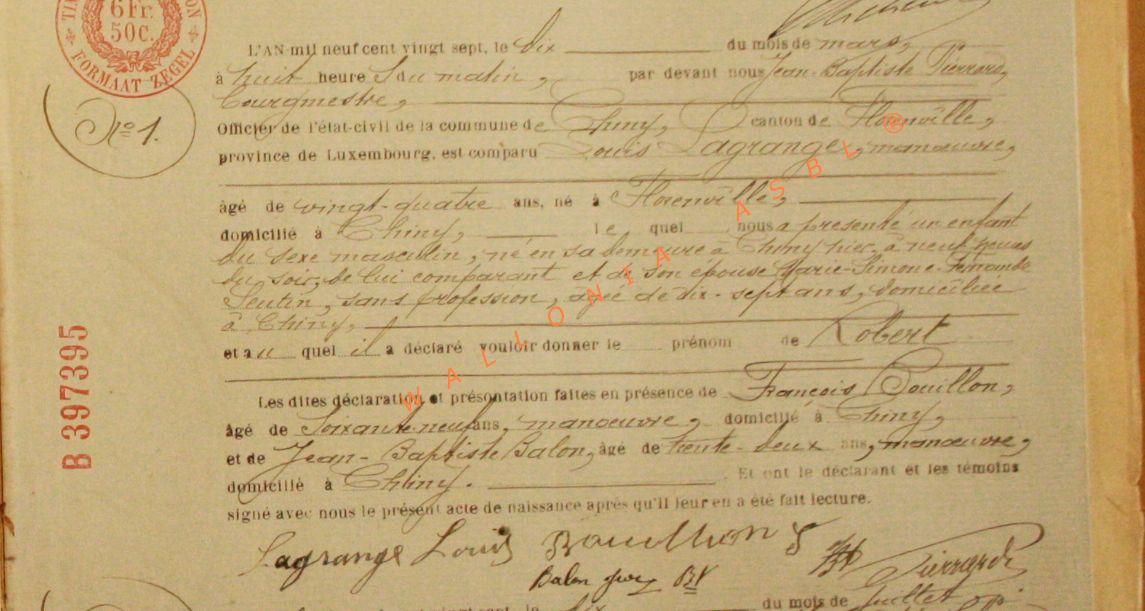 6 Fr.
50C.
FORMAAT ZEGEL
L'AN mil neuf cent vingt sept, le dix du mois de mars,
à huit heure s du matin, par devant nous Jean-Baptiste Pierrard,
bourgmestre,
Nº 1.
Officier de l'état-civil de la commune de Chiny, canton de Florenville,
province de Luxembourg, est comparu Louis Lagrange, manœuvre,
âgé de vingt-quatre ans, né à Florenville,
domicilié à Chiny, le quel nous a présenté un enfant
du sexe masculin, né en sa demeure à Chiny hier, à neuf heures
du soir, de lui comparant et de son épouse Marie-Simone-Fernande
sans profession, âgée de dix-sept ans, domiciliée
à Chiny,
et au quel il a déclaré vouloir donner le prénom de Robert
Les dites déclaration et présontation faites en présence de François Bouillon,
âgé de Soixante-neuf ans, manœuvre, domicilié à Chiny,
et de Jean-Baptiste Balon, âgé de trente-deux ans, manœuvre,
domicilié à Chiny. Et ont le déclarant et les témoins
signé avec nous le présent acte de naissance après qu'il leur en a été fait lecture.
B 397395
WALLONIA ASBL ®
Lagrange Louis Bouillon Pierrard
Balon
vingt sept, le dix du mois de juillet